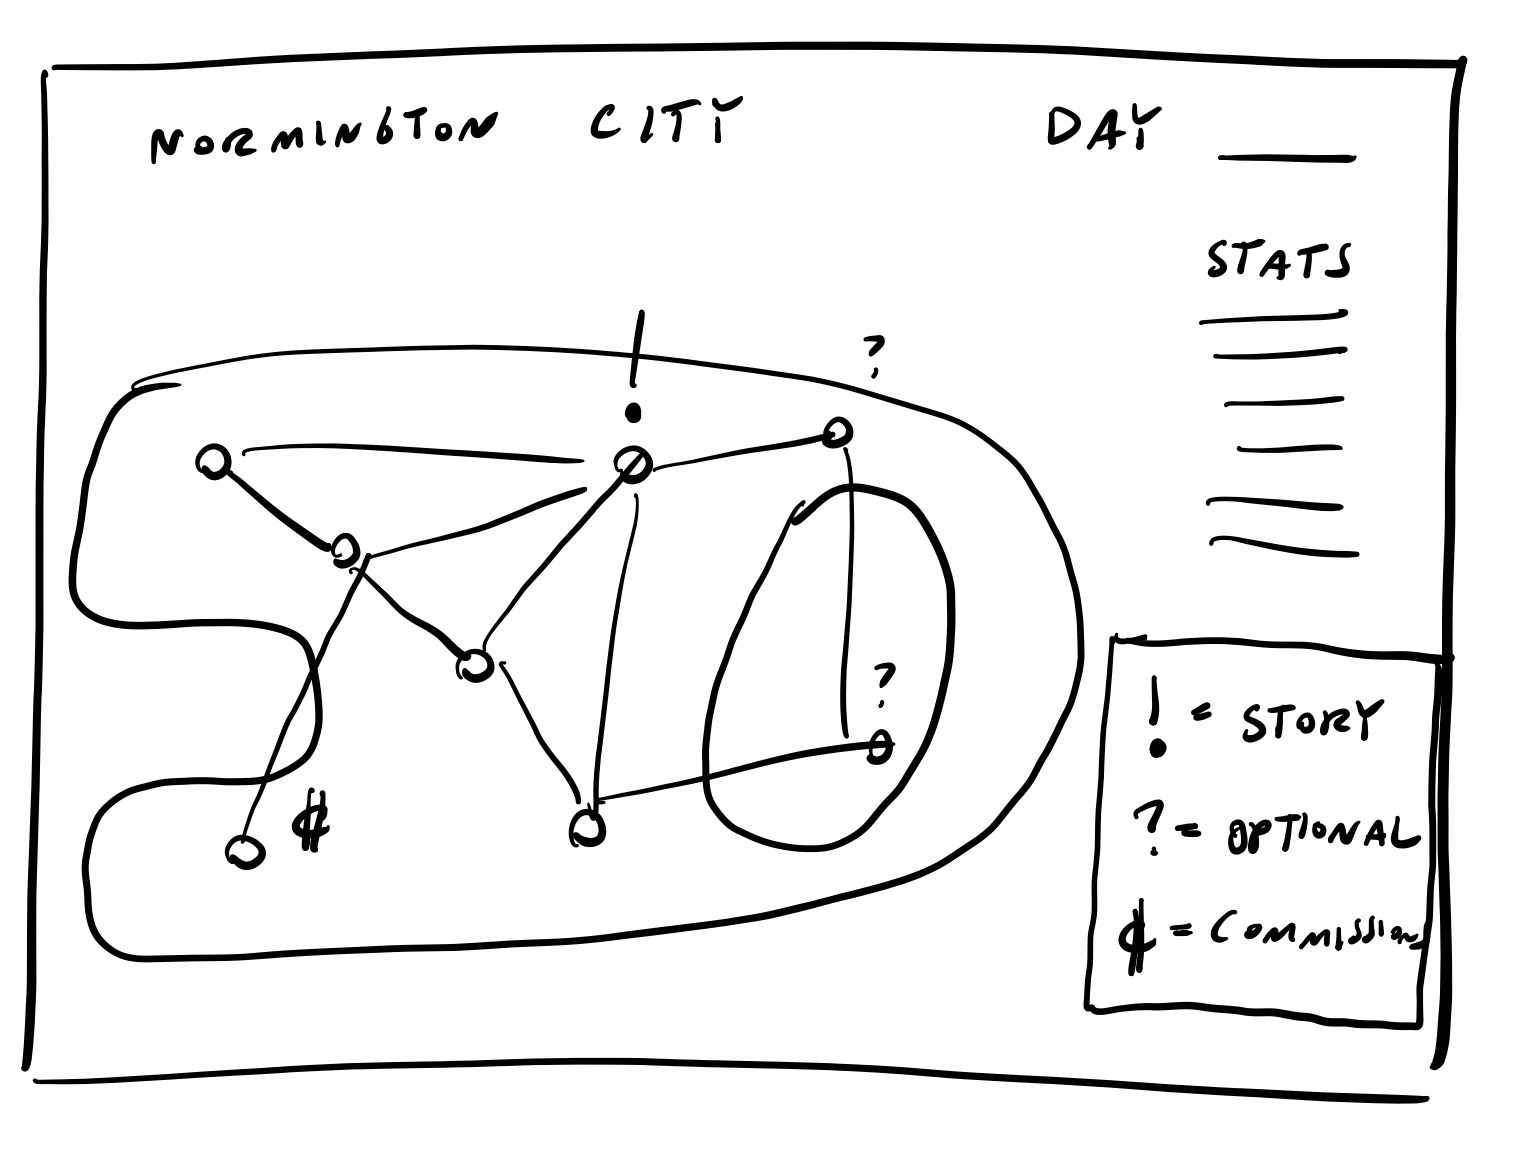 NORMINGTON CITY DAY
STATS
!
?
?
₵
! = STORY
? = OPTIONAL
₵ = COMMISSIONS